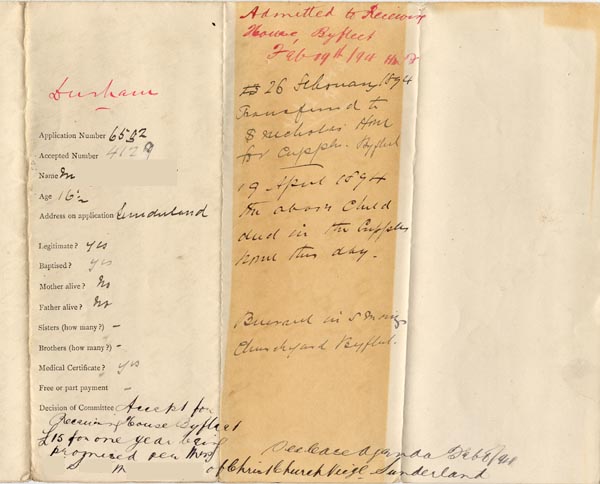 Durham
Application Number 6502
Accepted Number 4129
Name
Age 16½
Address on application Sunderland
Legitimate? Yes
Baptised? Yes
Mother alive? No
Father alive? No
Sisters (how many?) -
Brothers (how many?) -
Medical Certificate? Yes
Free or part payment -
Decision of Committee Accept for
Receiving House Byfleet
£15 for one year being
promised per
of Christ Church Sunderland
Admitted to Receiving
House, Byfleet
Feb 19th /94
26 February 1894
Transferred to
S Nicholas Home
for Cripples. Byfleet
19 April 1894
the above child
died in the Cripples
home this day.
Buried in S Mary's
Churchyard Byfleet.
See Case Agenda Feb